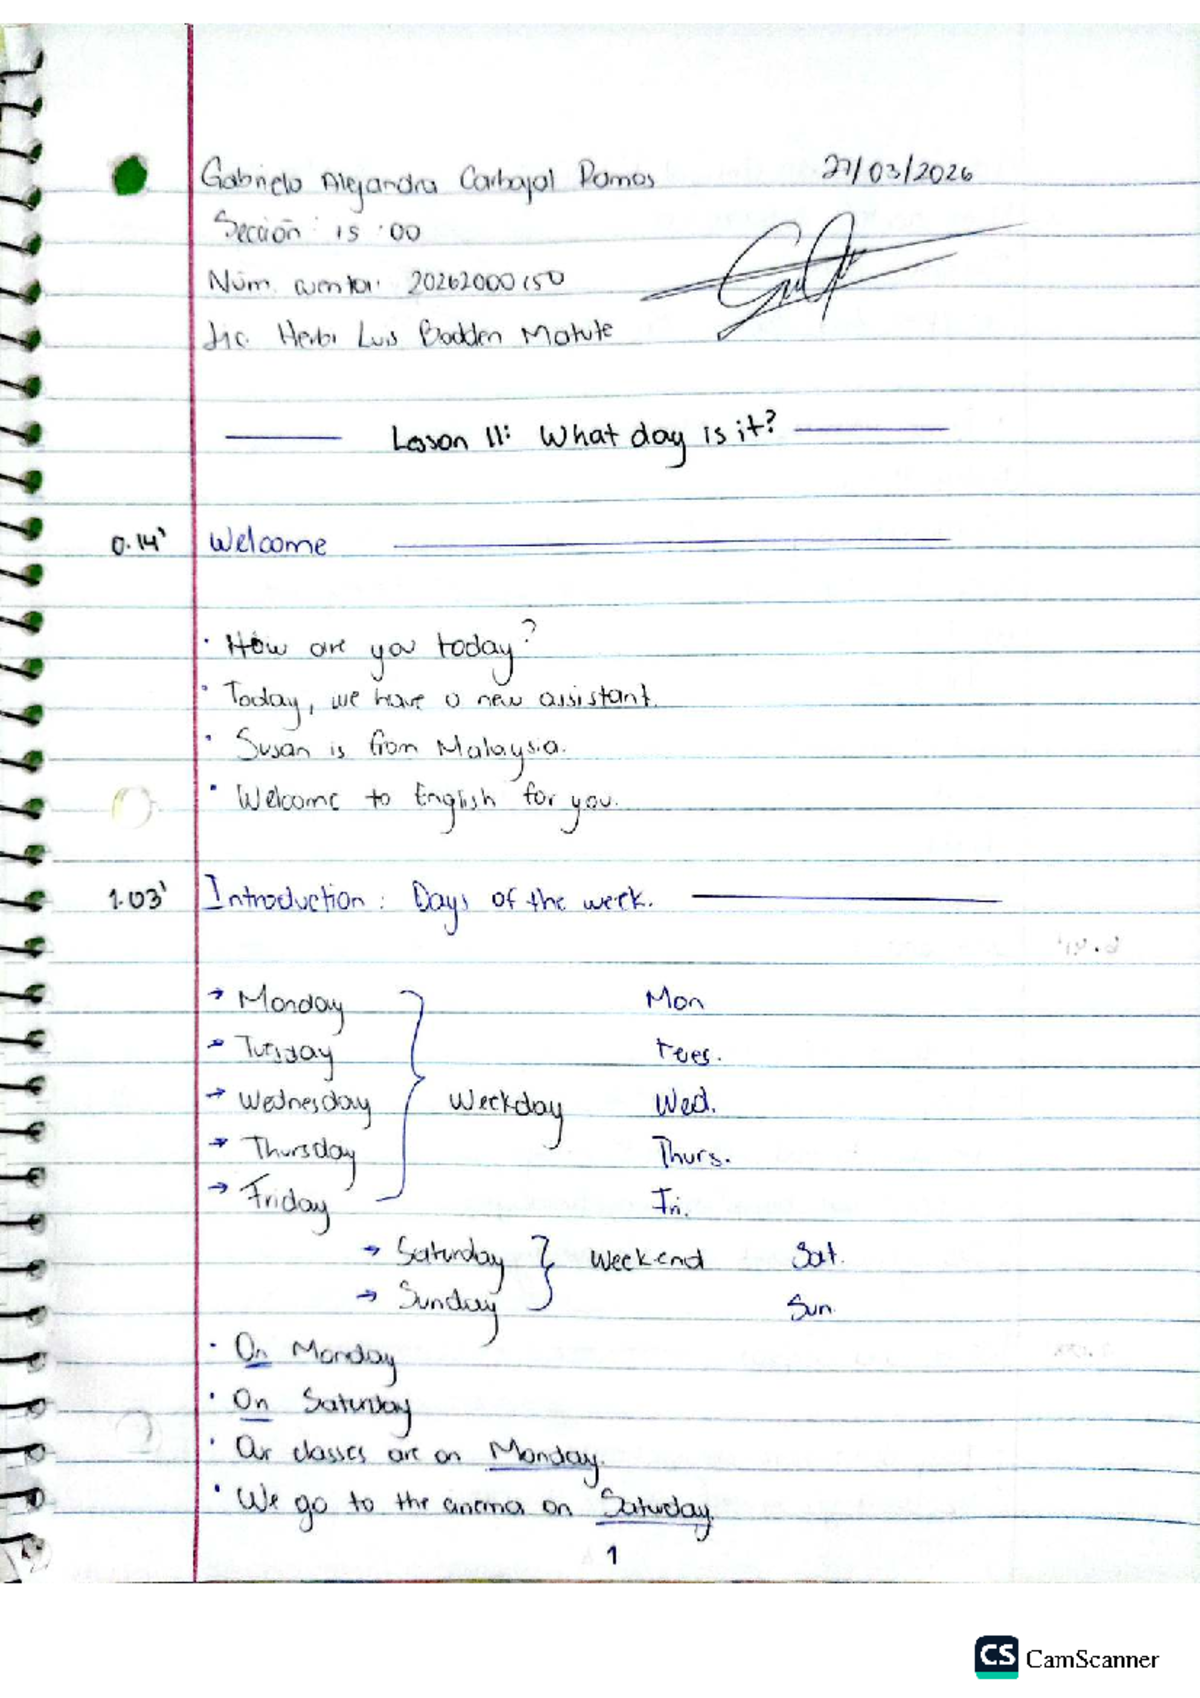 Gabriela Alejandra Carbajal Ramos 27/03/2026
Sección: 15:00
Núm. cuenta: 20262000150
Lic. Herbi Luis Bodden Matute
Lesson 11: What day is it?
0.14' Welcome
• How are you today?
• Today, we have a new assistant.
• Susan is from Malaysia.
• Welcome to English for you.
1.03' Introduction: Days of the week.
→ Monday Mon
→ Tuesday Tues.
→ Wednesday Weekday Wed.
→ Thursday Thurs.
→ Friday Fri.
→ Saturday Weekend Sat.
→ Sunday Sun.
• On Monday
• On Saturday
• Our classes are on Monday.
• We go to the cinema on Saturday.
1
CS CamScanner